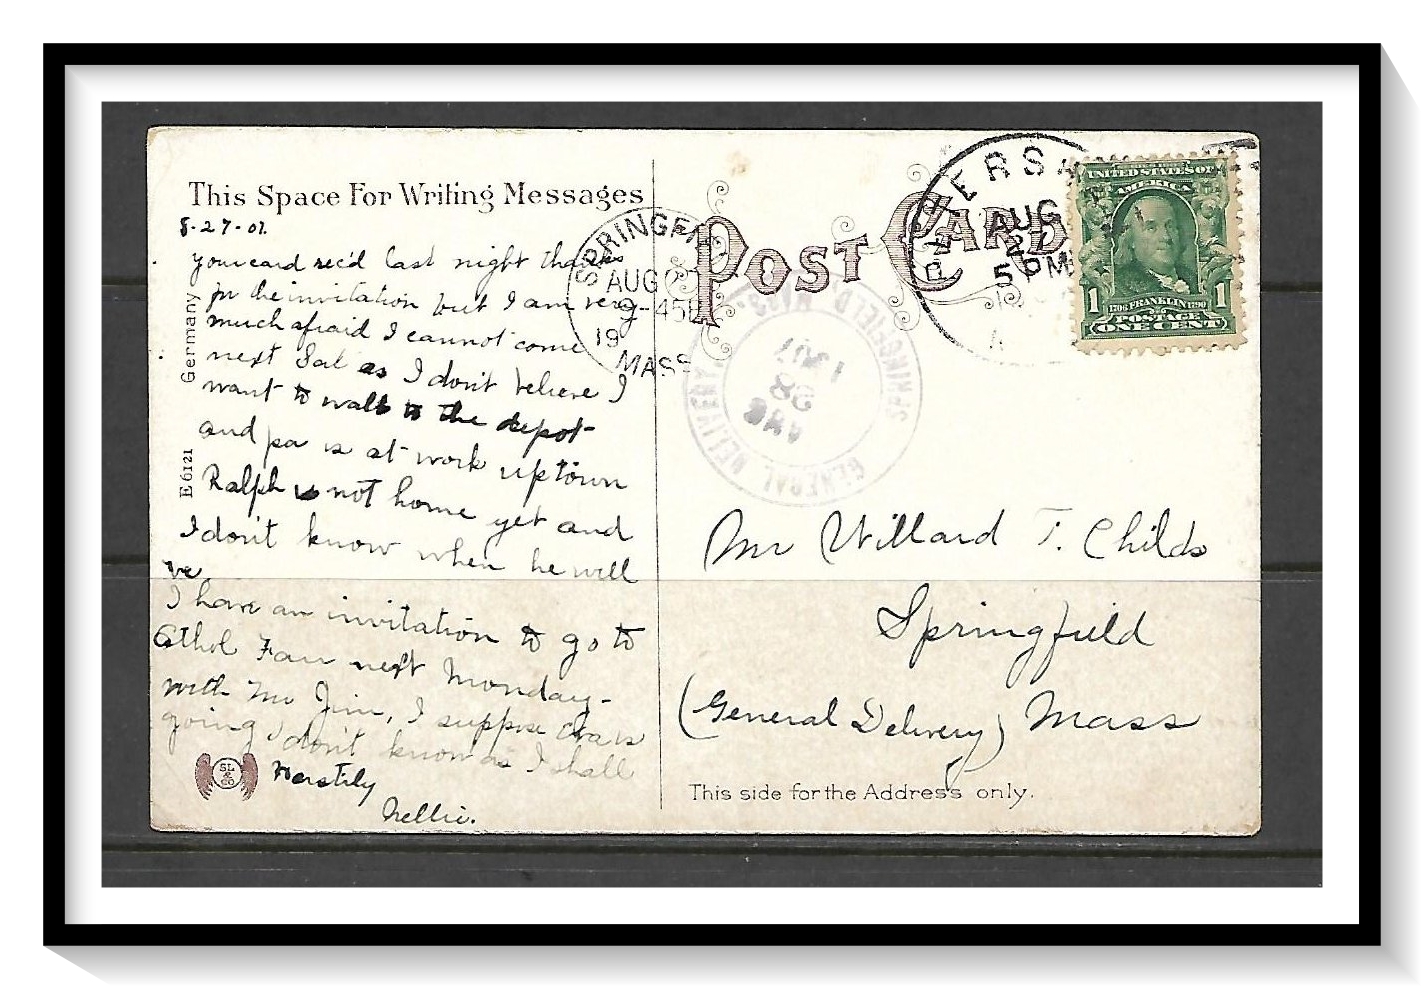 This Space For Writing Messages
8-27-07.
your card rec'd last night thanks
for the invitation but I am very
much afraid I cannot come
next Sat as I don't believe I
want to walk to the depot
and pa is at work uptown
Ralph is not home yet and
I don't know when he will
be
I have an invitation to go to
Athol Fair next Monday-
with Mr Jim, I suppose is
going, I don't know as I shall
Hastily
Nellie.
Germany
E 6121
SL & CO
POST CARD
SPRINGFIEL
AUG 2
9-45
19
MASS
PETERSHAM
AUG
27
5 PM
UNITED STATES OF
AMERICA
1706 FRANKLIN 1790
POSTAGE
1 1
ONE CENT
GENERAL DELIVERY, SPRINGFIELD, MASS.
AUG
28
1907
Mr Willard T. Childs
Springfield
(General Delivery) Mass
This side for the Address only.